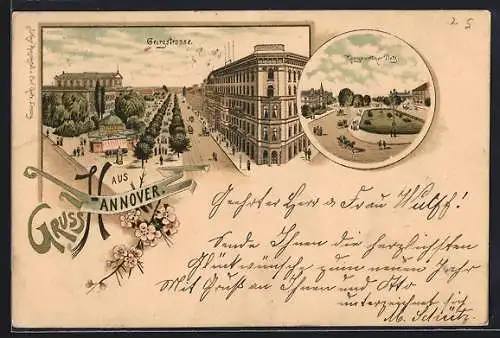 Georgstrasse.
GRUSS
AUS
HANNOVER.
Geehrter Herr & Frau Wulff!
Sende Ihnen die herzlichsten
Glückwünsche zum neuen Jahr
Mit Gruß an Ihnen und Otto
unterzeichnet sich
M. Schütz.